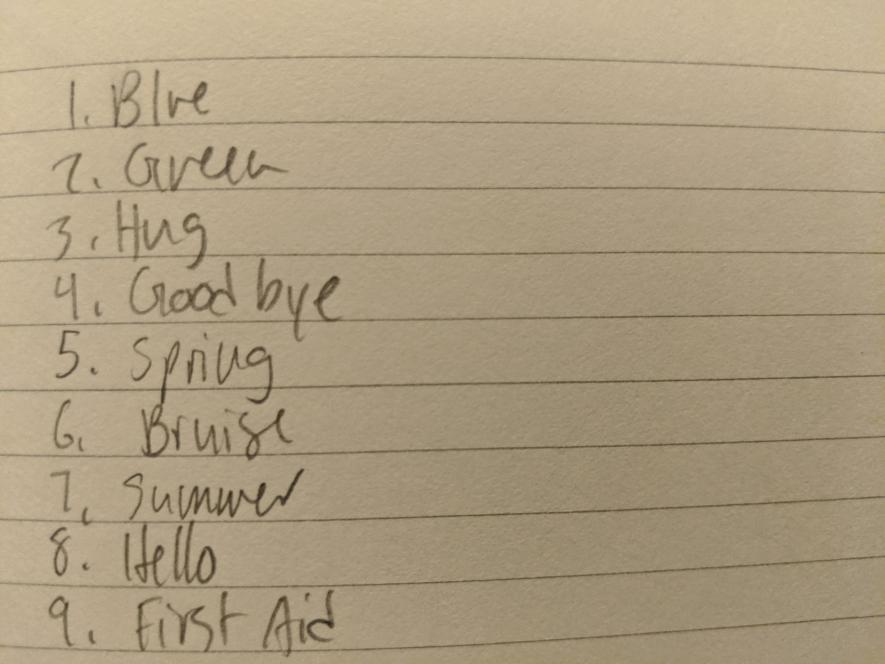 1. Blue
2. Green
3. Hug
4. Goodbye
5. Spring
6. Bruise
7. Summer
8. Hello
9. First Aid